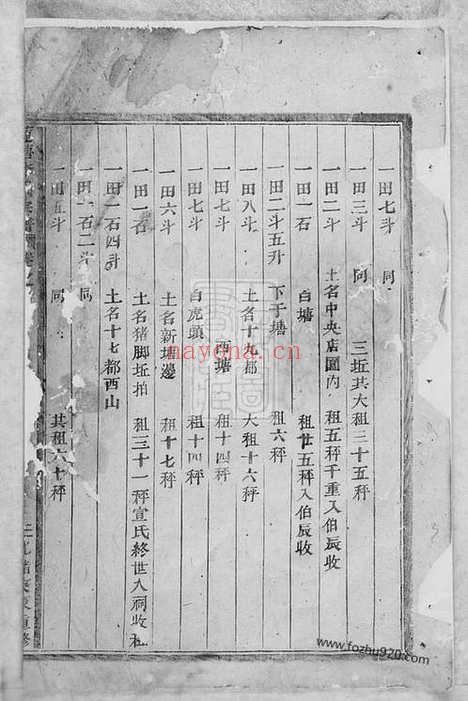 一田七斗 同
一田三斗 同 三坵共大租三十五秤
一田二斗 土名中央店園內 租五秤千重入伯辰收
一田一石 白塘 租廿五秤入伯辰收
一田二斗五升 下于塘 租六秤
一田八斗 土名十九都 大租十六秤
一田七斗 西塘 租十四秤
一田七斗 白虎頭 租十四秤
一田六斗 土名新塘邊 租十七秤
一田一石 土名猪脚坵拍 租三十一秤宣氏終世入祠收租
一田一石四升 土名十七都西山
一田一石二斗 同
一田五斗 同 共租六十秤
nayona.cn
www.fozhu920.com